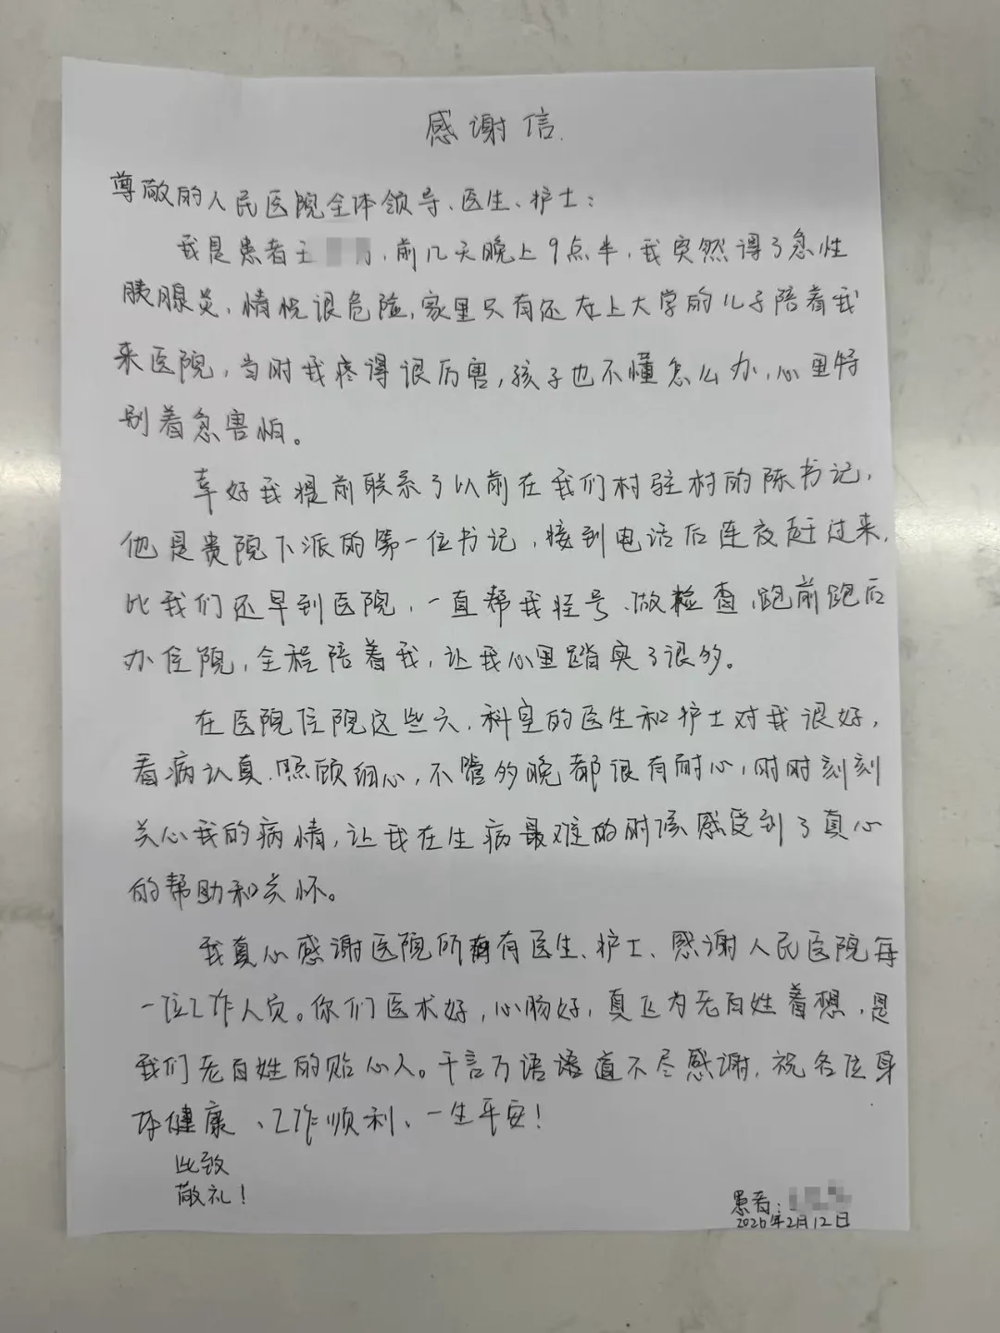 感谢信.
尊敬的人民医院全体领导、医生、护士:
我是患者王 ,前几天晚上9点半,我突然得了急性
胰腺炎,情况很危险,家里只有还在上大学的儿子陪着我
来医院,当时我疼得很厉害,孩子也不懂怎么办,心里特
别着急害怕。
幸好我提前联系了以前在我们村驻村的陈书记,
他是贵院下派的第一位书记,接到电话后连夜赶过来,
比我们还早到医院,一直帮我挂号、做检查、跑前跑后
办住院,全程陪着我,让我心里踏实了很多。
在医院住院这些天,科室的医生和护士对我很好,
看病认真、照顾细心,不管多晚都很有耐心,时时刻刻
关心我的病情,让我在生病最难的时候感受到了真心
的帮助和关怀。
我真心感谢医院所有医生、护士、感谢人民医院每
一位工作人员。你们医术好,心肠好,真正为老百姓着想,是
我们老百姓的贴心人。千言万语道不尽感谢,祝各位身
体健康、工作顺利、一生平安!
此致
敬礼!
患者:
2026年2月12日